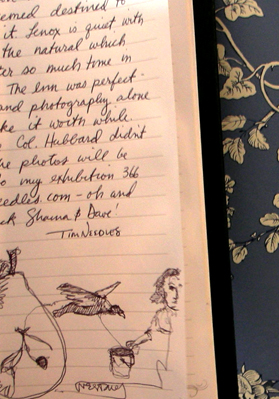 emed destined to
it. Lenox is quiet with
the natural which
ter so much time in
The Inn was perfect -
and photography alone
ke it worth while.
Col. Hubbard didn't
he photos will be
to my exhibition 366
eedles.com - oh and
ck Shauna & Dave!
TIM NEEDLES